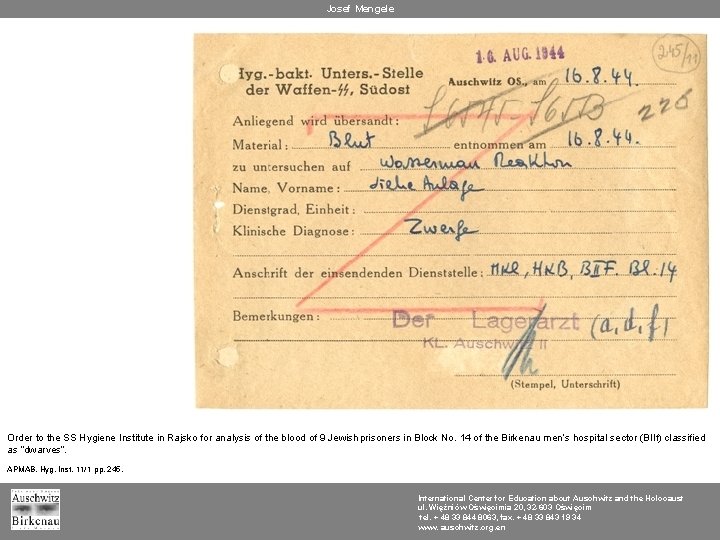 Josef Mengele
16. AUG. 1944
245/11
Hyg.-bakt. Unters.-Stelle
der Waffen-SS, Südost
Auschwitz OS., am 16.8.44.
Anliegend wird übersandt:
Material: Blut entnommen am 16.8.44.
zu untersuchen auf Wasserman Reaktion
Name, Vorname: siehe Anlage
Dienstgrad, Einheit:
Klinische Diagnose: Zwerge
Anschrift der einsendenden Dienststelle: MKL, HKB, BIIF. Bl. 14
Bemerkungen:
Der Lagerarzt (a, d, f)
KL. Auschwitz II
(Stempel, Unterschrift)
Order to the SS Hygiene Institute in Rajsko for analysis of the blood of 9 Jewish prisoners in Block No. 14 of the Birkenau men's hospital sector (BIIf) classified
as "dwarves".
APMAB. Hyg. Inst. 11/1 pp. 245.
Auschwitz
Birkenau
International Center for Education about Auschwitz and the Holocaust
ul. Więźniów Oświęcimia 20, 32-603 Oświęcim
tel. + 48 33 844 8063, fax. + 48 33 843 19 34
www. auschwitz.org.en